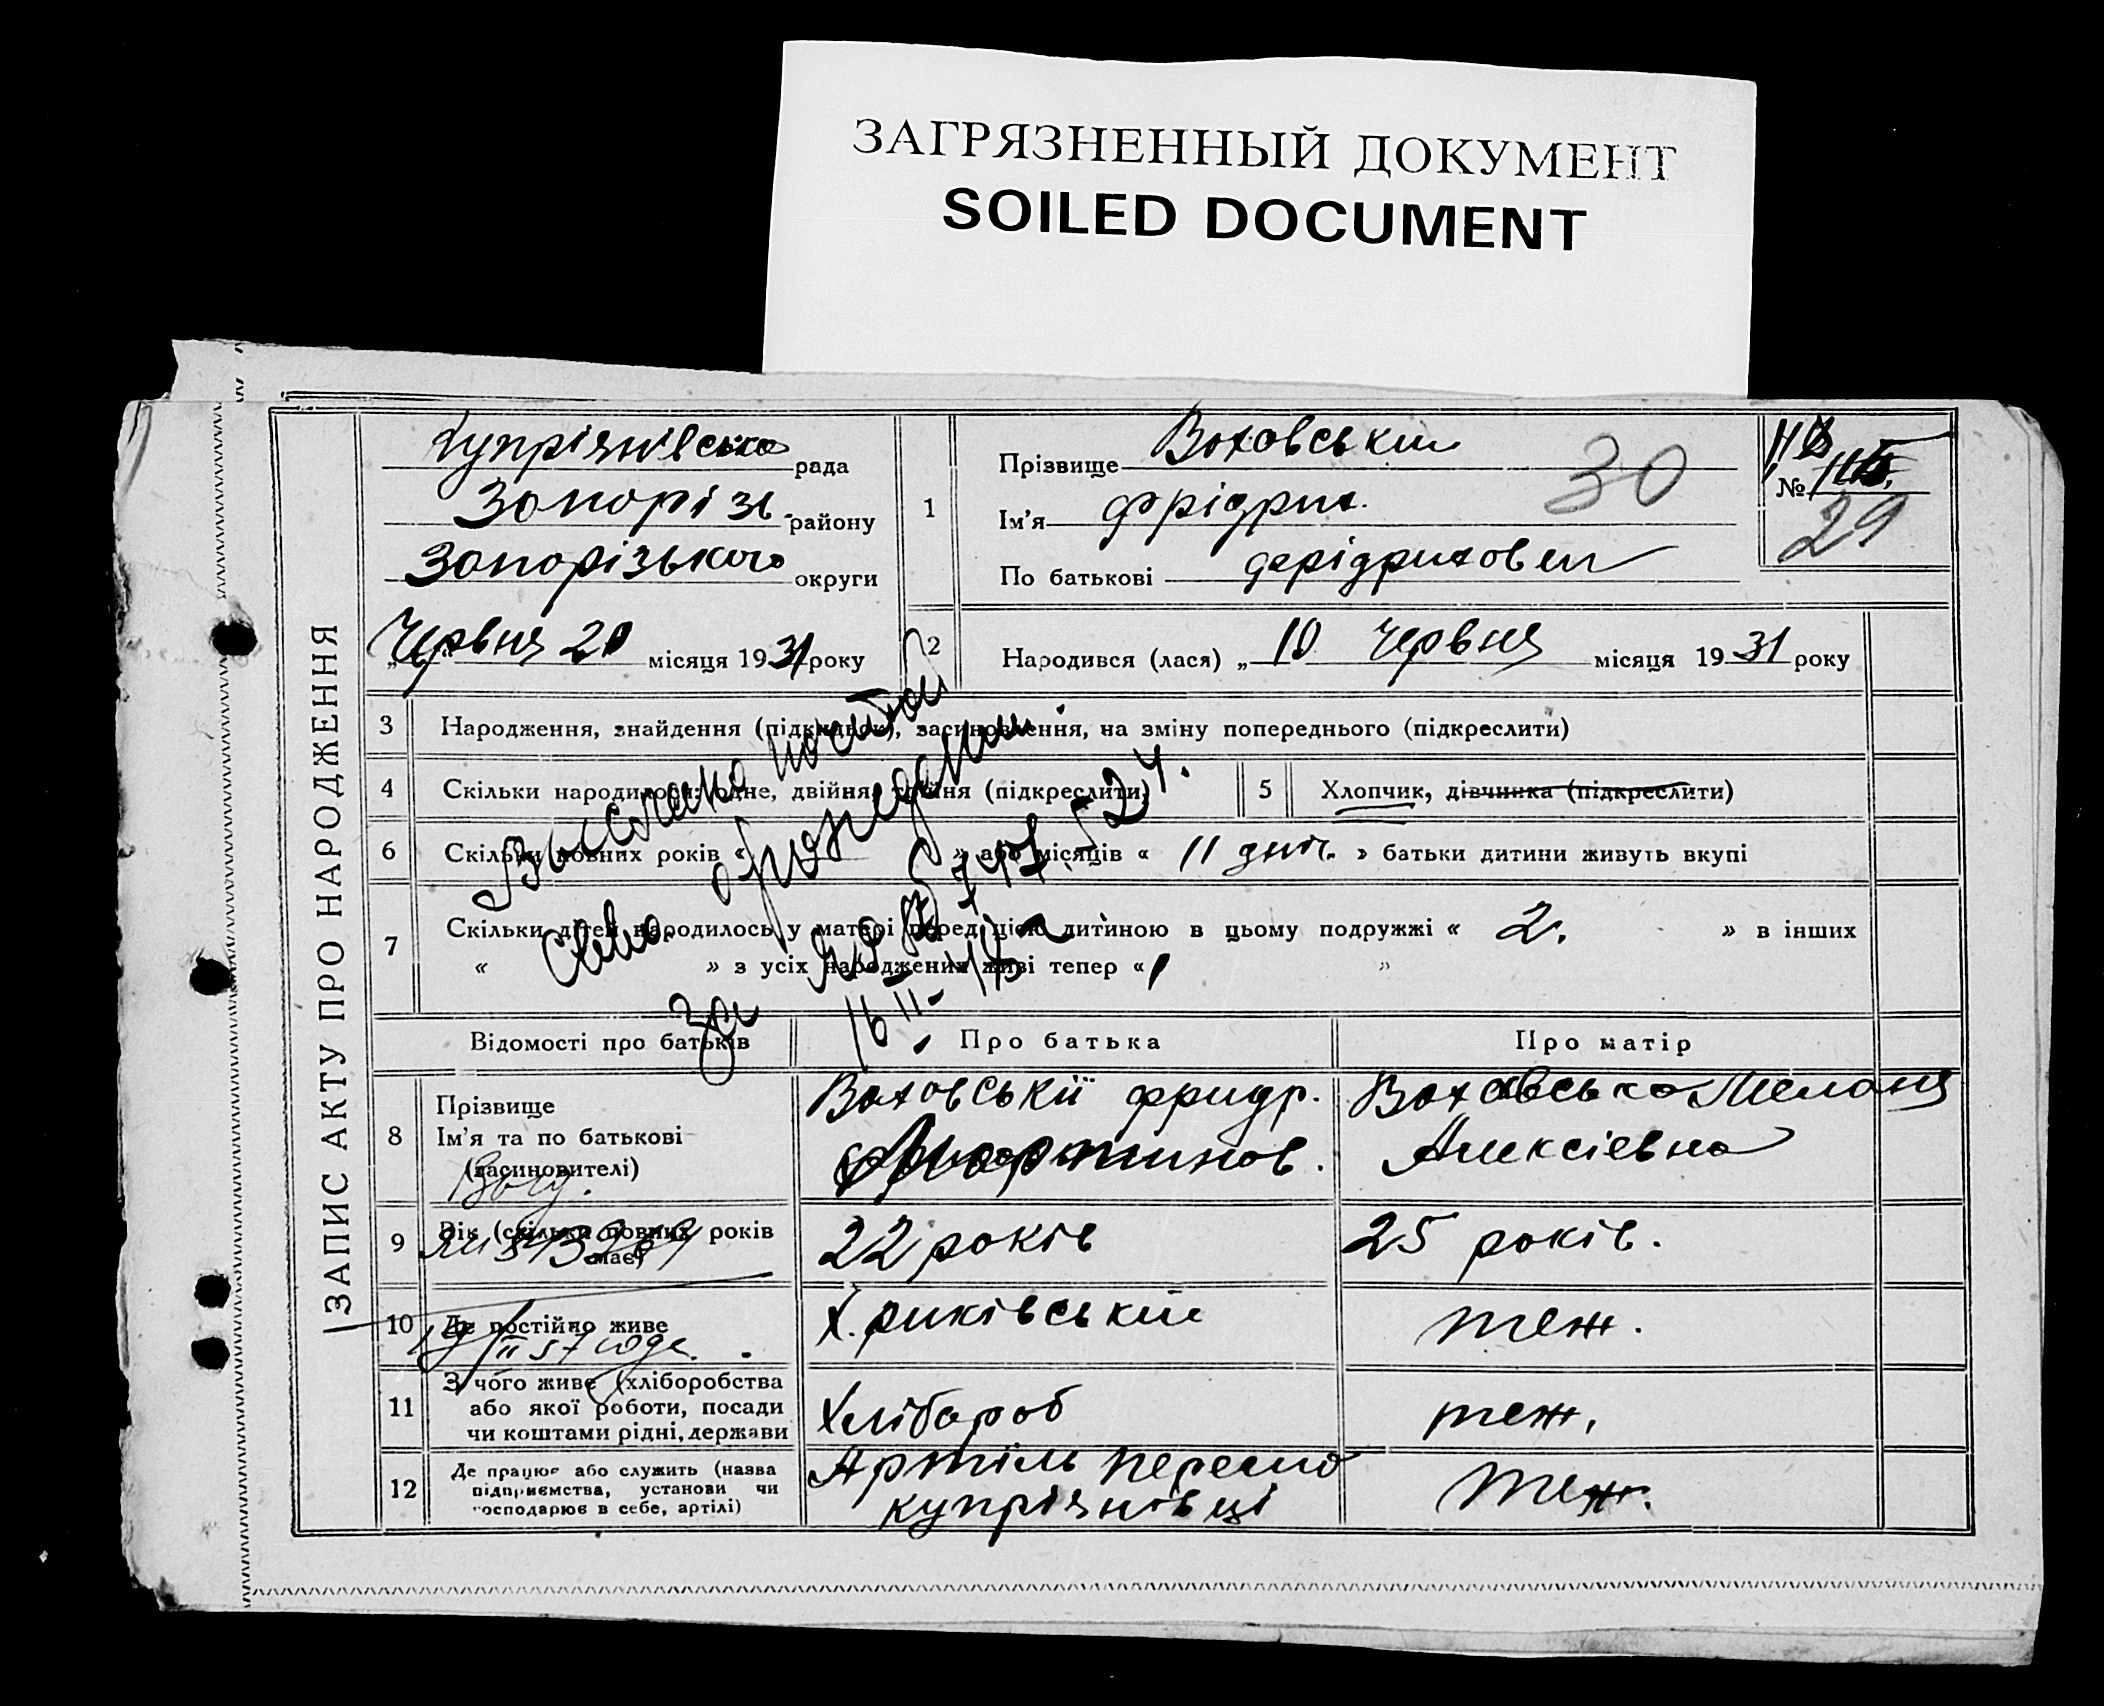 ЗАГРЯЗНЕННЫЙ ДОКУМЕНТ
SOILED DOCUMENT
ЗАПИС АКТУ ПРО НАРОДЖЕННЯ
Купріянівська рада
Запорізь. району
Запорізького округи
„Червня 20 місяця 1931 року
1
Прізвище Воховський
Ім'я Фрідрих.
По батькові Фрідрихович
30
№
29
2
Народився (лася) „10 Червня місяця 1931 року
3 Народження, знайдення (підкидьок), засиновлення, на зміну попереднього (підкреслити)
4 Скільки народилося: одне, двійня, трійня (підкреслити)
5 Хлопчик, дівчинка (підкреслити)
6 Скільки повних років « » або місяців « 11 днів. » батьки дитини живуть вкупі
7 Скільки дітей народилось у матері перед цією дитиною в цьому подружжі « 2. » в інших
« » з усіх народжених живі тепер « 1 »
Выслано почтой
Свид. о рождении
за
16 II-
Відомості про батьків
Про батька
Про матір
8 Прізвище
Ім'я та по батькові
(засиновителі)
Воховській Фридр.
Мартинов.
Воховська Меланя
Алексієвна
9 Вік (скільки повних років має)
22 років
25 років.
10 Де постійно живе
II 57 года.
Х. риківський
теж.
11 З чого живе (хліборобства
або якої роботи, посади
чи коштами рідні, держави
Хлібороб
теж.
12 Де працює або служить (назва
підприємства, установи чи
господарює в себе, артілі)
Артіль
купріянівці
теж.